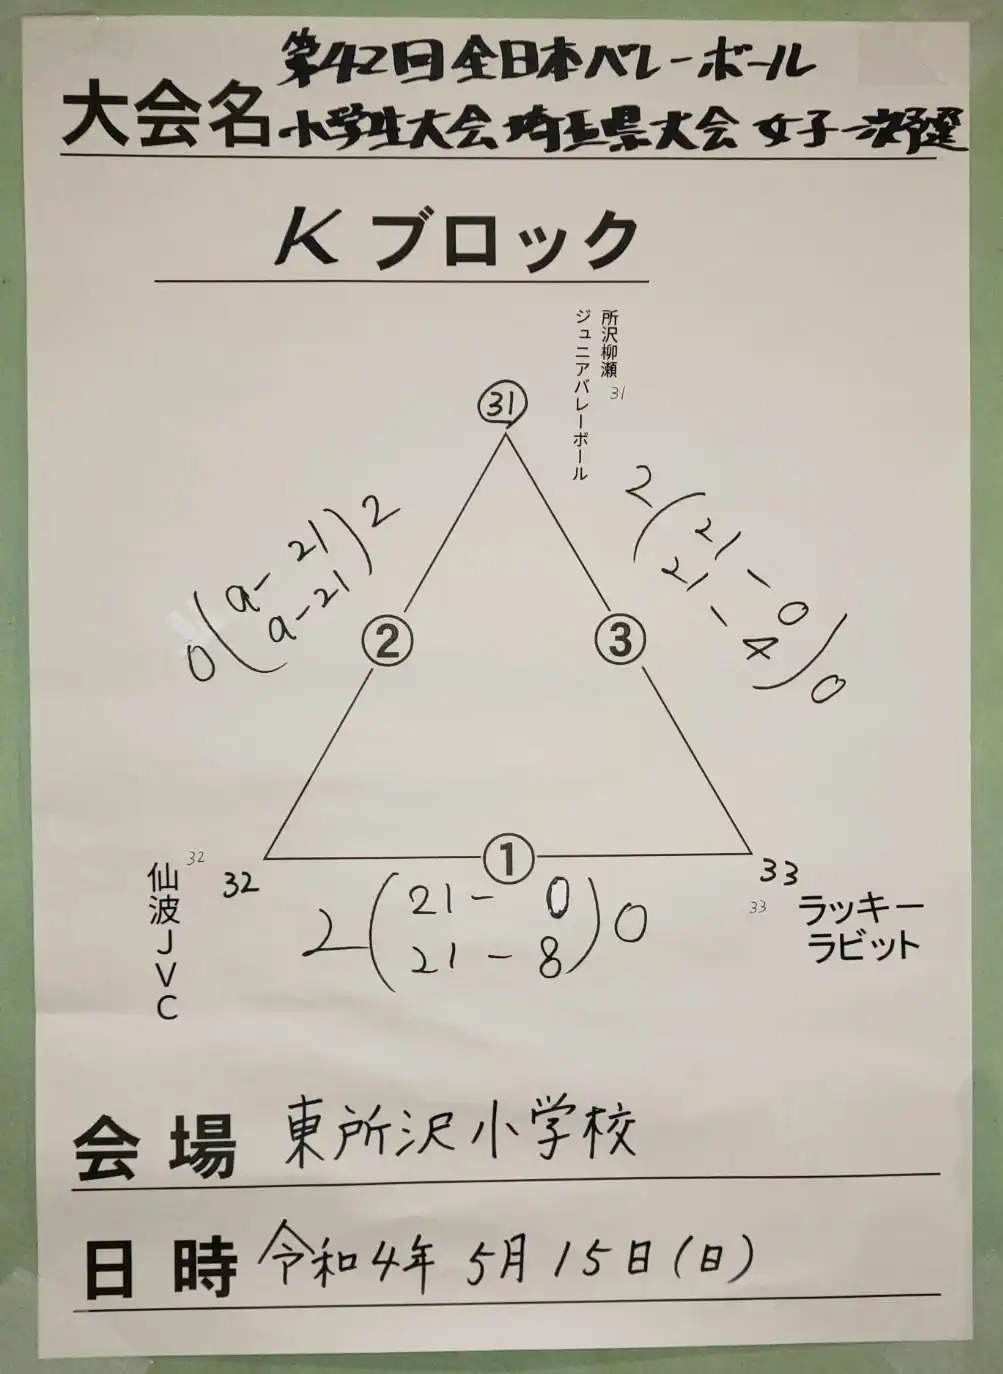 大会名 第42回全日本バレーボール
小学生大会 埼玉県大会 女子一次予選
K ブロック
所沢柳瀬
ジュニアバレーボール
31
31
0 ( 9-21 9-21 ) 2
2 ( 21-0 21-4 ) 0
2
3
1
32
32
仙波JVC
33
33
ラッキー
ラビット
2 ( 21-0 21-8 ) 0
会場 東所沢小学校
日時 令和4年 5月15日(日)